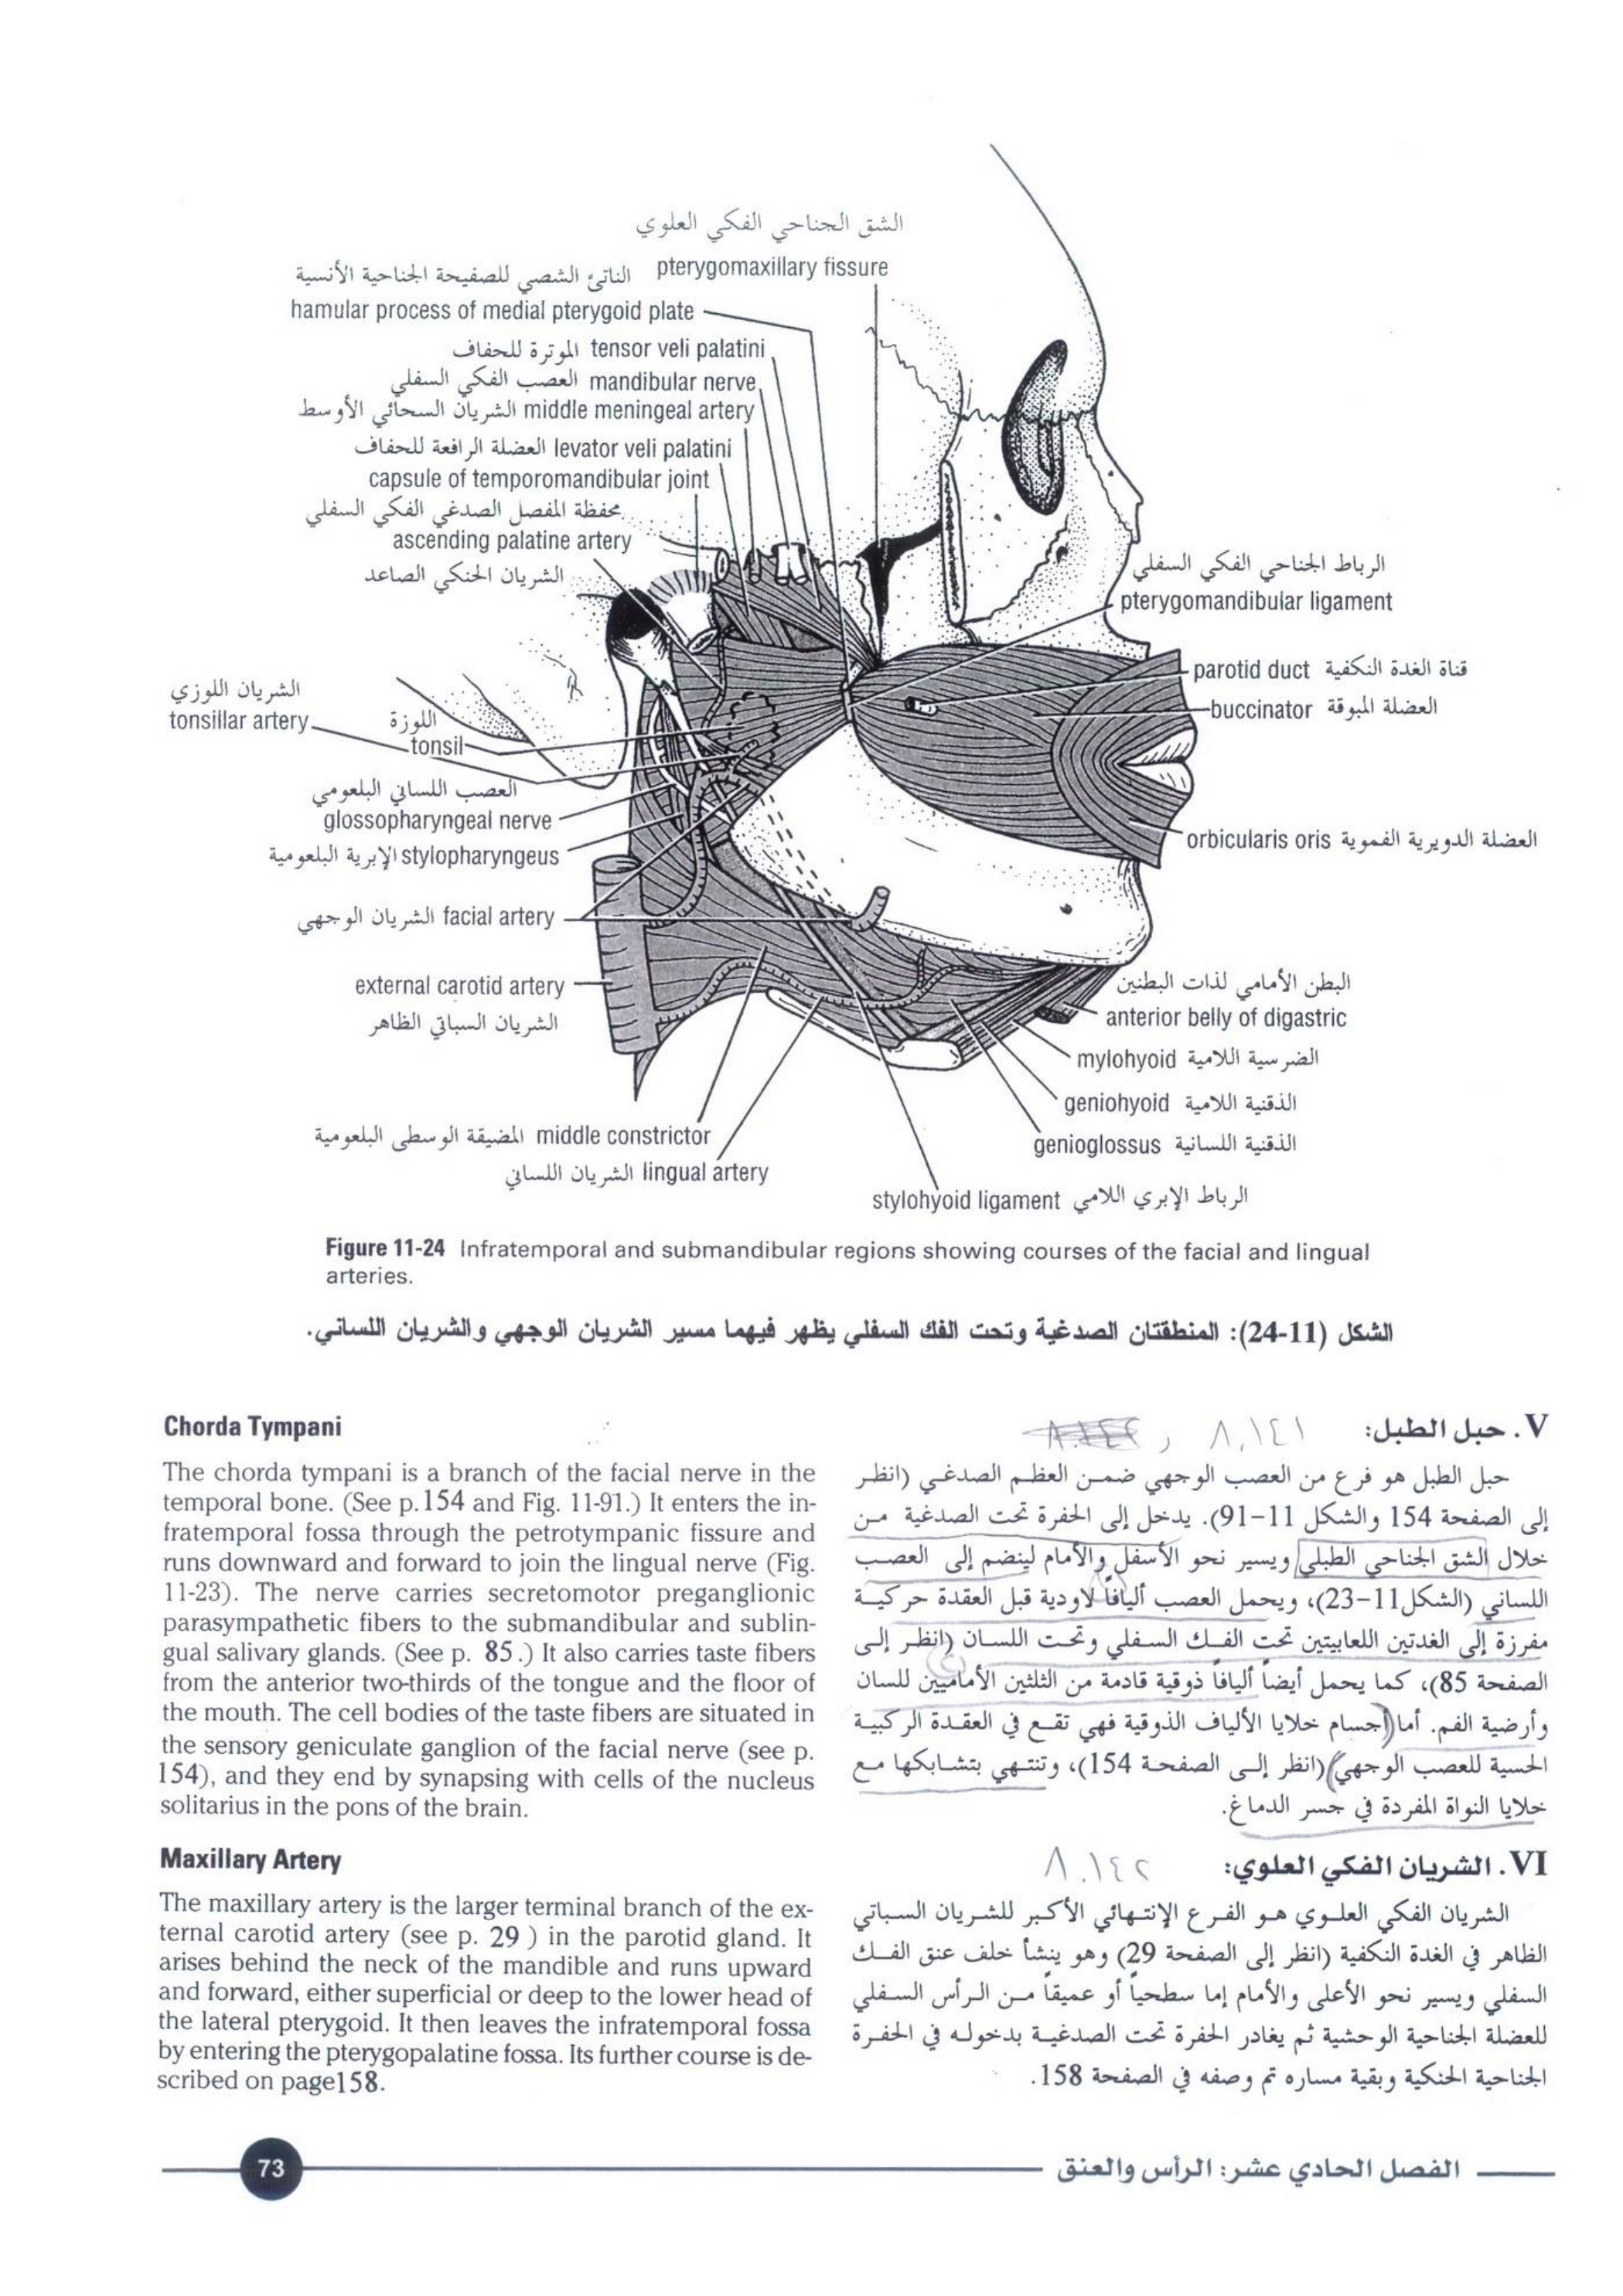 الشق الجناحي الفكي العلوي
pterygomaxillary fissure
الناتئ الشصي للصفيحة الجناحية الأنسية
hamular process of medial pterygoid plate
الموترة للحفاف tensor veli palatini
العصب الفكي السفلي mandibular nerve
الشريان السحائي الأوسط middle meningeal artery
العضلة الرافعة للحفاف levator veli palatini
capsule of temporomandibular joint
محفظة المفصل الصدغي الفكي السفلي
ascending palatine artery
الشريان الحنكي الصاعد
الرباط الجناحي الفكي السفلي
pterygomandibular ligament
parotid duct قناة الغدة النكفية
buccinator العضلة المبوقة
الشريان اللوزي
tonsillar artery
اللوزة
tonsil
العصب اللساني البلعومي
glossopharyngeal nerve
الإبرية البلعومية stylopharyngeus
orbicularis oris العضلة الدويرية الفموية
الشريان الوجهي facial artery
external carotid artery
الشريان السباتي الظاهر
البطن الأمامي لذات البطنين
anterior belly of digastric
mylohyoid الضرسية اللامية
geniohyoid الذقنية اللامية
genioglossus الذقنية اللسانية
المضيقة الوسطى البلعومية middle constrictor
الشريان اللساني lingual artery
stylohyoid ligament الرباط الإبري اللامي
Figure 11-24 Infratemporal and submandibular regions showing courses of the facial and lingual
arteries.
الشكل (11-24): المنطقتان الصدغية وتحت الفك السفلي يظهر فيهما مسير الشريان الوجهي والشريان اللساني.
Chorda Tympani
The chorda tympani is a branch of the facial nerve in the
temporal bone. (See p.154 and Fig. 11-91.) It enters the in-
fratemporal fossa through the petrotympanic fissure and
runs downward and forward to join the lingual nerve (Fig.
11-23). The nerve carries secretomotor preganglionic
parasympathetic fibers to the submandibular and sublin-
gual salivary glands. (See p. 85.) It also carries taste fibers
from the anterior two-thirds of the tongue and the floor of
the mouth. The cell bodies of the taste fibers are situated in
the sensory geniculate ganglion of the facial nerve (see p.
154), and they end by synapsing with cells of the nucleus
solitarius in the pons of the brain.
Maxillary Artery
The maxillary artery is the larger terminal branch of the ex-
ternal carotid artery (see p. 29 ) in the parotid gland. It
arises behind the neck of the mandible and runs upward
and forward, either superficial or deep to the lower head of
the lateral pterygoid. It then leaves the infratemporal fossa
by entering the pterygopalatine fossa. Its further course is de-
scribed on page158.
V. حبل الطبل: ٨.١٤١
حبل الطبل هو فرع من العصب الوجهي ضمن العظم الصدغي (انظر
إلى الصفحة 154 والشكل 11-91). يدخل إلى الحفرة تحت الصدغية من
خلال الشق الجناحي الطبلي ويسير نحو الأسفل والأمام لينضم إلى العصب
اللساني (الشكل11-23)، ويحمل العصب أليافاً لاودية قبل العقدة حركية
مفرزة إلى الغدتين اللعابيتين تحت الفك السفلي وتحت اللسان (انظر إلى
الصفحة 85)، كما يحمل أيضاً أليافاً ذوقية قادمة من الثلثين الأماميين للسان
وأرضية الفم. أما أجسام خلايا الألياف الذوقية فهي تقع في العقدة الركبية
الحسية للعصب الوجهي (انظر إلى الصفحة 154)، وتنتهي بتشابكها مع
خلايا النواة المفردة في جسر الدماغ.
VI. الشريان الفكي العلوي: ٨.١٤٢
الشريان الفكي العلوي هو الفرع الإنتهائي الأكبر للشريان السباتي
الظاهر في الغدة النكفية (انظر إلى الصفحة 29) وهو ينشأ خلف عنق الفك
السفلي ويسير نحو الأعلى والأمام إما سطحياً أو عميقاً من الرأس السفلي
للعضلة الجناحية الوحشية ثم يغادر الحفرة تحت الصدغية بدخوله في الحفرة
الجناحية الحنكية وبقية مساره تم وصفه في الصفحة 158.
73
الفصل الحادي عشر: الرأس والعنق